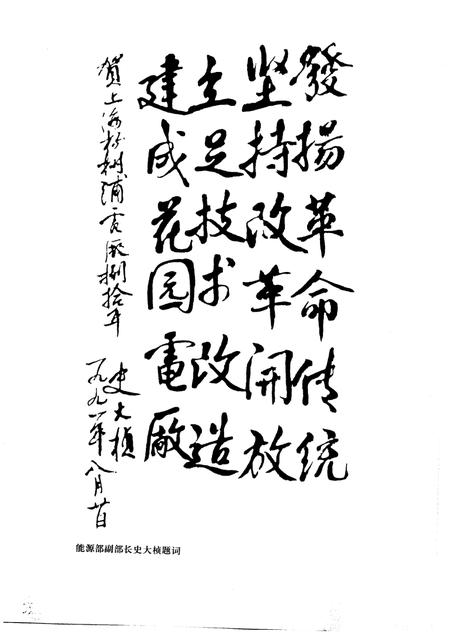 發揚革命传统
坚持改革開放
立足技术改造
建成花园電廠
賀上海杨树浦電廠捌拾年
史大楨
一九九一年八月廿日
能源部副部长史大桢题词